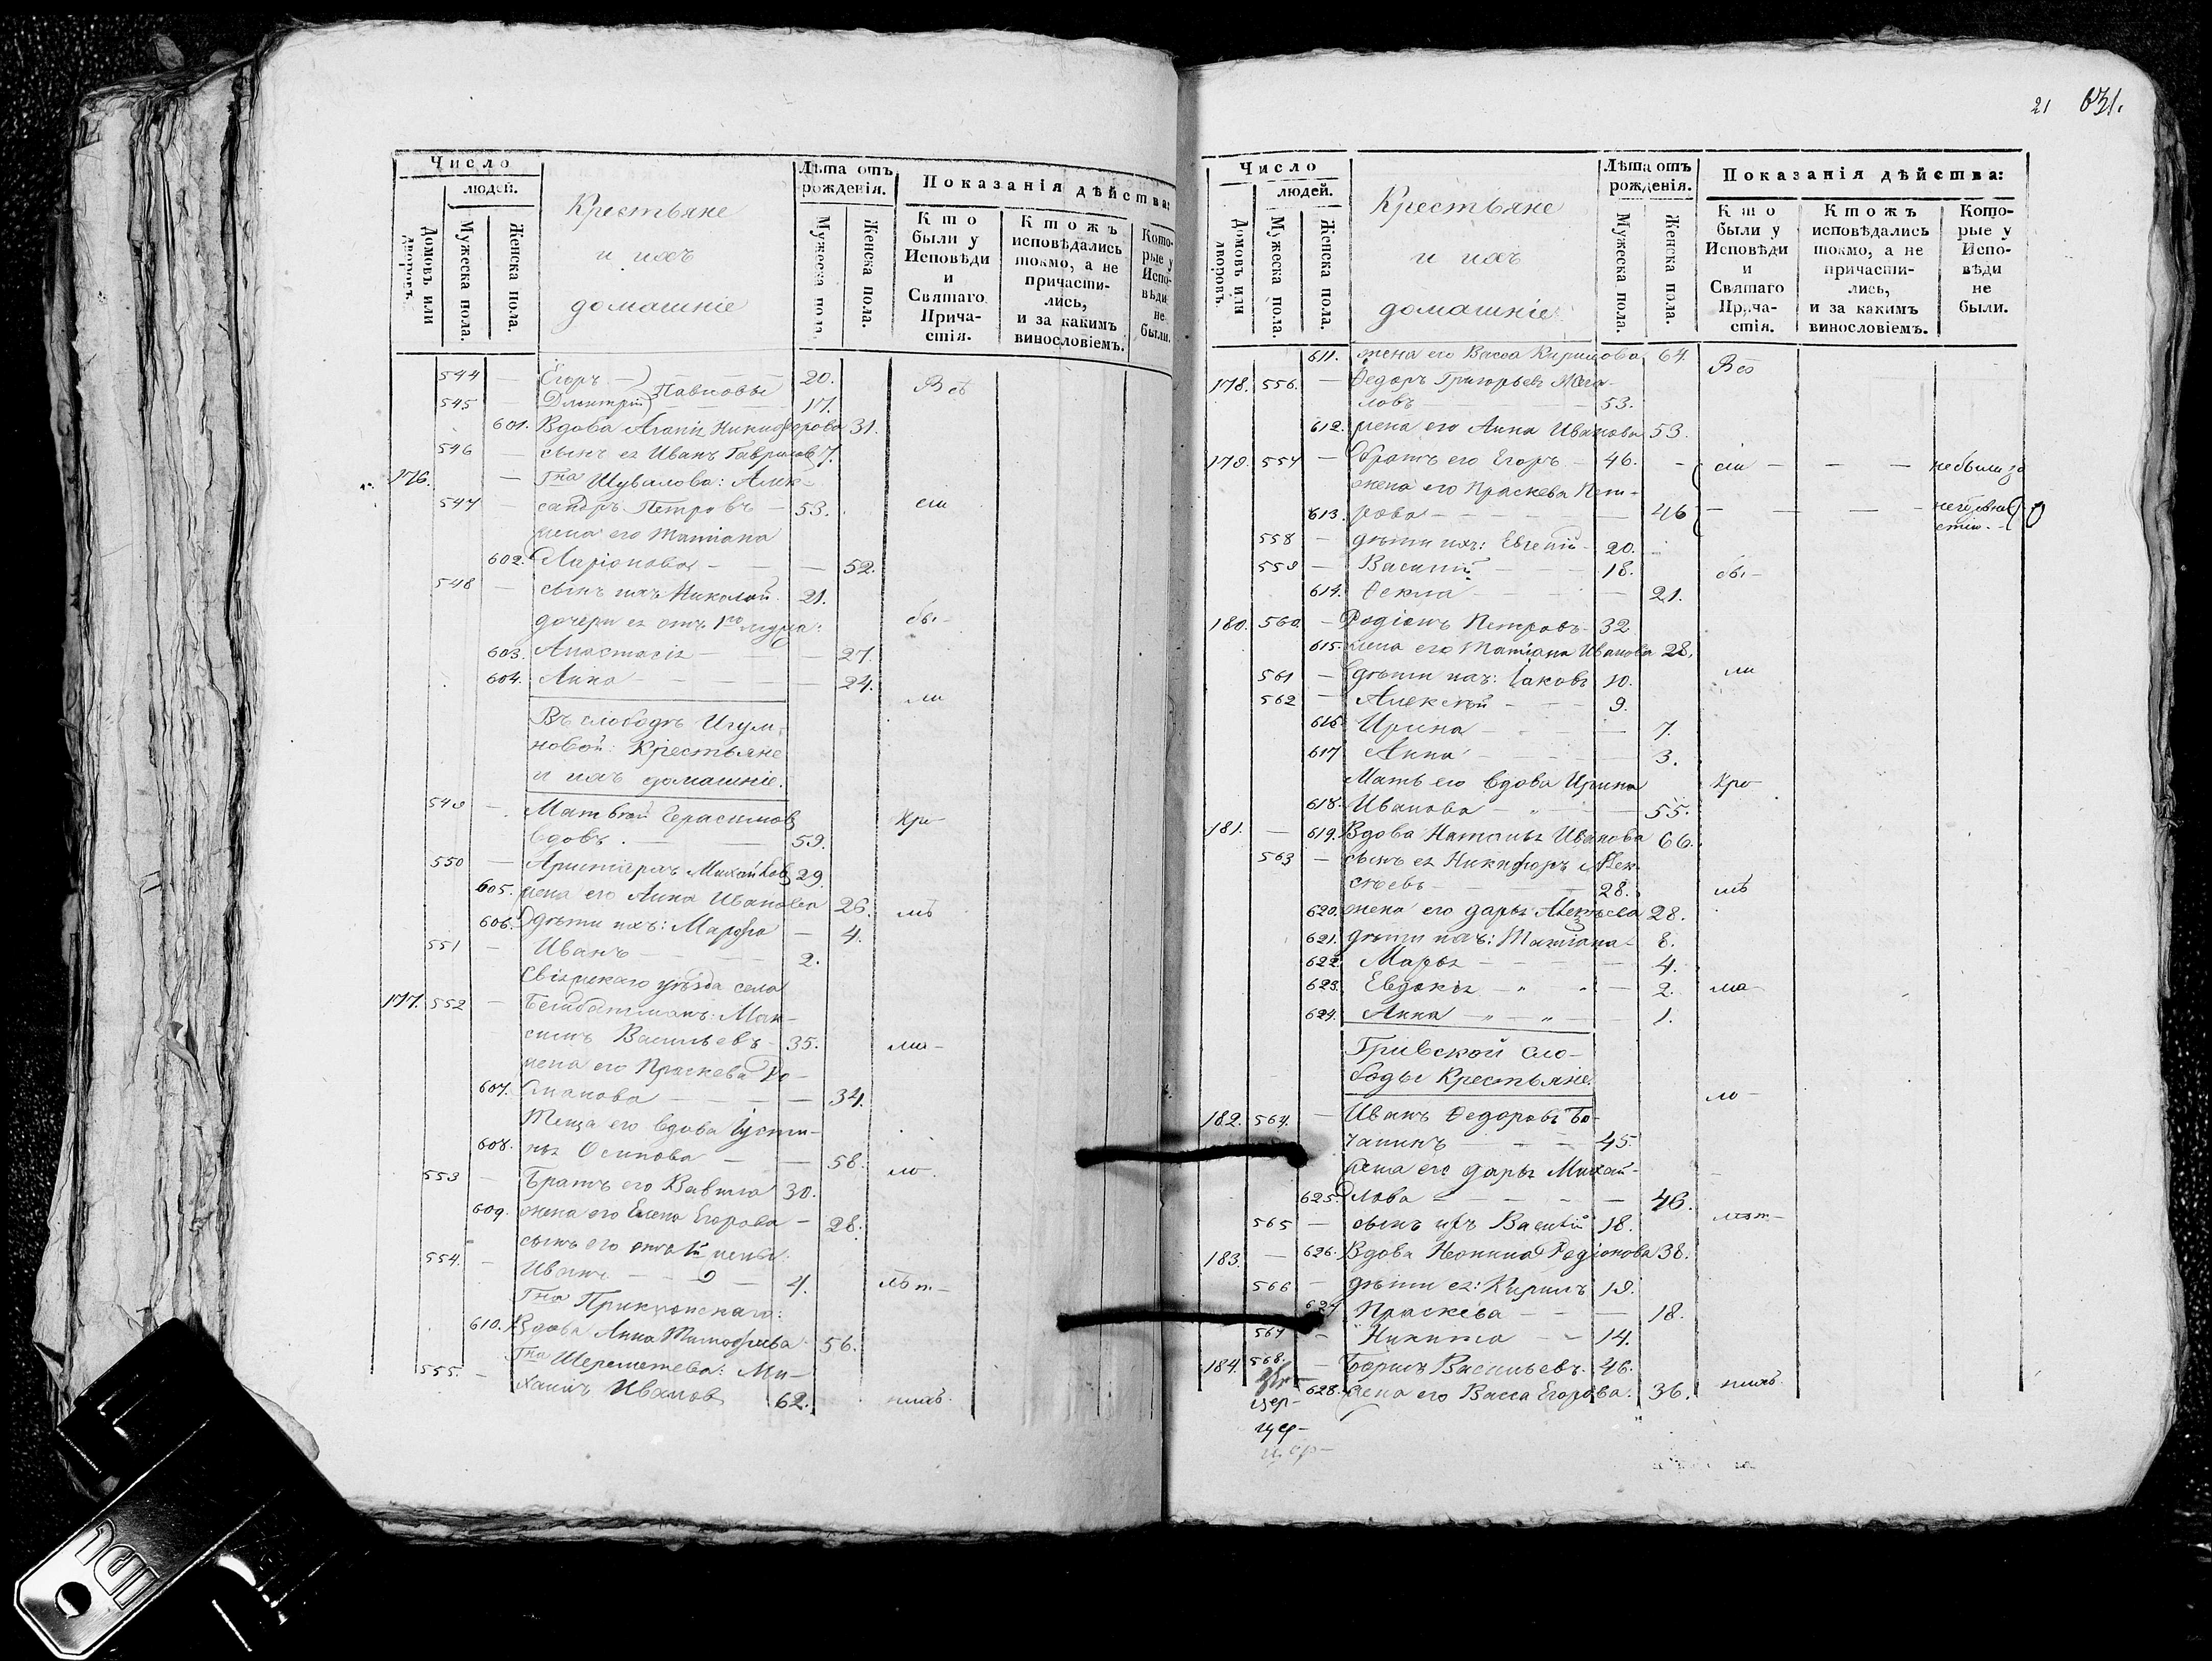 Число
людей.
Домовъ или дворовъ.
Мужеска пола.
Женска пола.
Крестьяне
и ихъ
домашніе
Лѣта отъ
рожденія.
Мужеска пола.
Женска пола.
Показанія дѣйства:
Кто
были у
Исповѣди
и
Святаго
Прича-
стія.
Ктожъ
исповѣдались
токмо, а не
причасти-
лись,
и за какимъ
винословіемъ.
Кото-
рые у
Испо-
вѣди
не
были.
544 — Егоръ — 20. Всѣ
Павловы
545 Дмитрій 17.
601. Вдова Агапія Никифорова 31.
546 — сынъ ея Иванъ Гавриловъ 7.
176. — Гна Шувалова: Алек-
547 — сандръ Петровъ — 53. сіи
жена его Татіана
602. Ларіонова — — — 52.
548 — сынъ ихъ Николай 21.
дочери ея отъ 1го мужа: бы-
603. Анастасія — — 27.
604. Анна — — — — 24.
ли
Въ слободѣ Игум-
новой: Крестьяне
и ихъ домашніе.
549 — Матвѣй Герасимовъ кро-
вдовъ. — — 59.
550 — Михайловъ 29.
605. жена его Анна Иванова 26. мѣ
606. дѣти ихъ: Марфа — 4.
551 — Иванъ — — — 2.
Свіяжскаго уѣзда села
177. 552 — Бешбатманъ: Мак-
симъ Васильевъ — 35. ма-
жена его Праскева Ро-
607. манова — — — — 34.
Теща его вдова Іусти-
608. нія Осипова — — 58. ло-
553 — Братъ его Вавила 30.
609. жена его Елена Егорова — 28.
сынъ его жены
554. — Иванъ — — 4. лѣт-
Гна Приклонскаго:
610. Вдова Анна Тимофѣева 56.
Гна Шереметева: Ми-
555. — хаилъ Ивановъ 62. нихъ.
21 631.
Число
людей.
Домовъ или дворовъ.
Мужеска пола.
Женска пола.
Крестьяне
и ихъ
домашніе
Лѣта отъ
рожденія.
Мужеска пола.
Женска пола.
Показанія дѣйства:
Кто
были у
Исповѣди
и
Святаго
Прича-
стія.
Ктожъ
исповѣдались
токмо, а не
причасти-
лись,
и за какимъ
винословіемъ.
Кото-
рые у
Испо-
вѣди
не
были.
611. жена его Васса Кирилова 64. Всѣ
178. 556. — Ѳедоръ Григорьевъ
ловъ — — — 53.
612. жена его Анна Иванова 53.
179. 557 — братъ его Егоръ — 46. — сіи — — — не были за
жена его Праскева Пет-
613. рова — — — — 46 — — —
558 — дѣти ихъ: Евгеній — 20.
559 — Василій — — 18. бы-
614. Ѳекла — — — — 21.
180. 560. — Родіонъ Петровъ — 32
615. жена его Татіана Иванова 28.
561 — дѣти ихъ: Іаковъ 10. ли
562 — Алексѣй — — 9.
616. Ирина — — — 7.
617. Анна — — 3.
Мать его вдова Ирина кро-
618. Иванова — — — 55.
181. — 619. Вдова Наталья Иванова 66.
563 — сынъ ея Никифоръ Алек-
сѣевъ — — — 28. мѣ
620. жена его Дарья 28.
621. дѣти ихъ: Татіана — 8.
622. Марья — — — — 4.
623. Евдокія — — 2. ма-
624. Анна — — — 1.
Гривской сло-
боды Крестьяне.
ло-
182. 564. — Иванъ Ѳедоровъ Бо-
чанинъ — — 45.
жена его Дарья Михай-
625. лова — — — — 46.
565 — сынъ ихъ Василій 18. лѣт-
183. — 626. Вдова Неонила Родіонова 38.
566 — дѣти ея: Кирилъ 19.
627 Праскева — — — 18.
567 — Никита — — 14.
184. 568. — Борисъ Васильевъ. 46. нихъ.
628. жена его Васса Егорова. 36.
цер-
цер-
цер-